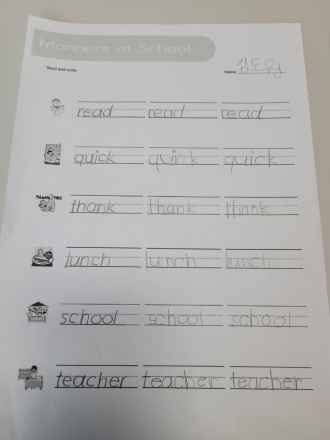 Manners at School
Read and write.
Name 김도원
read read read
quick quick quick
THANK YOU
thank thank thank
lunch lunch lunch
school school school
teacher teacher teacher